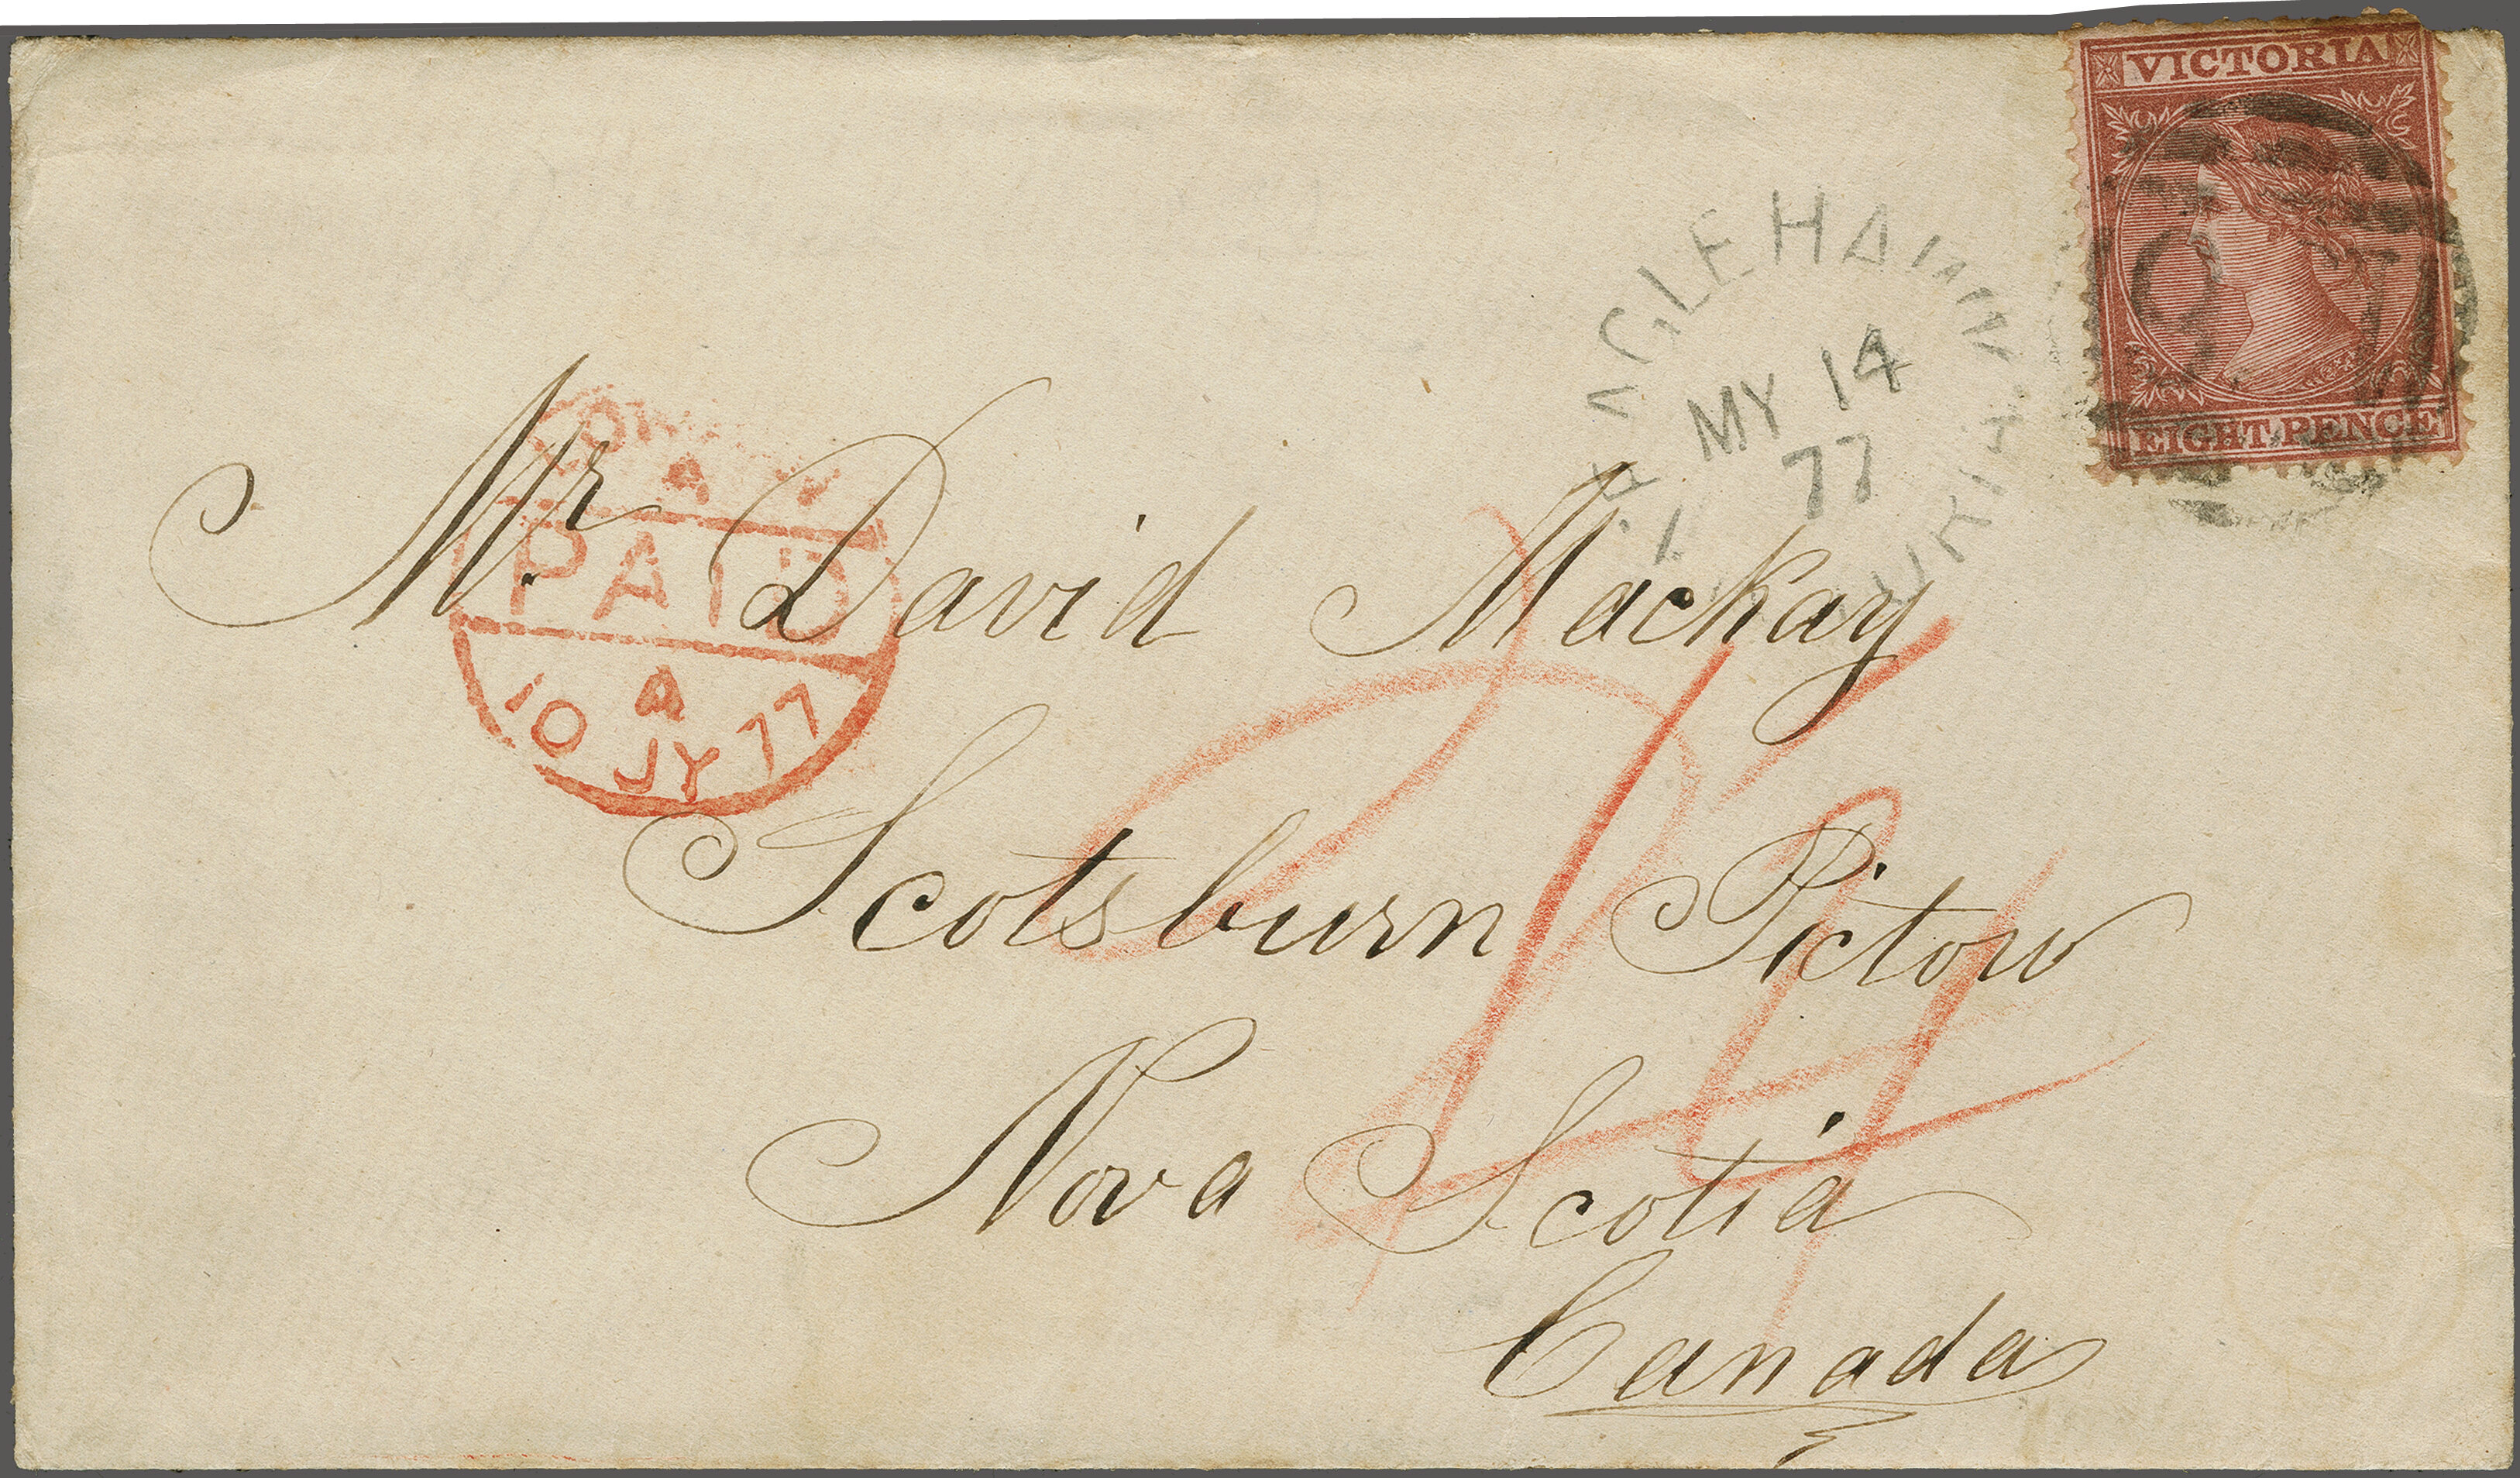 VICTORIA
EIGHT PENCE
MY 14
77
PAID
A
10 JY 77
Mr. David Mackay
Scotsburn Pictou
Nova Scotia
Canada